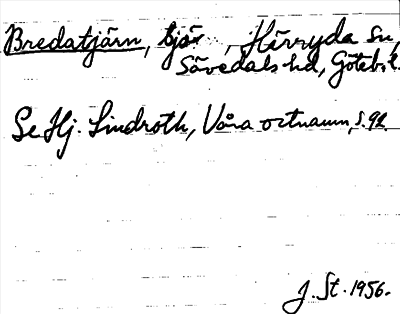 Bredatjärn, tjär, Härryda sn,
Sävedals hd, Göteb. l.
Se Hj. Lindroth, Våra ortnamn, s. 92.
J. St. 1956.